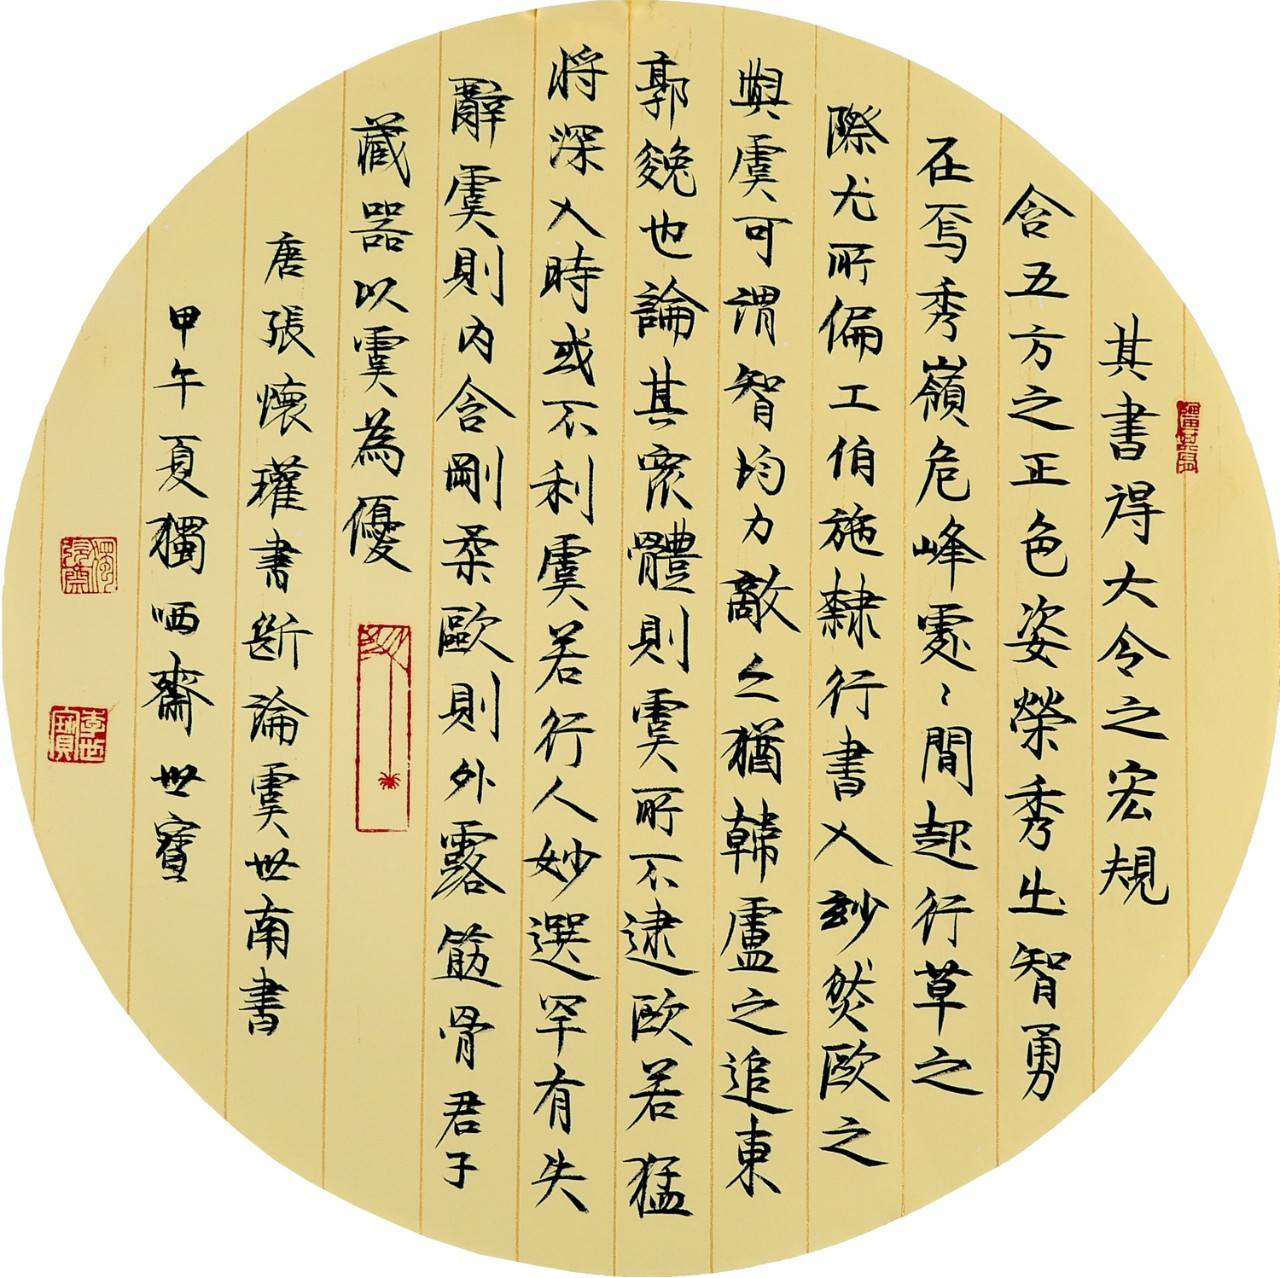 其書得大令之宏規
含五方之正色姿榮秀出智勇
在焉秀嶺危峰處〻間起行草之
際尤所偏工伯施隸行書入妙然歐之
與虞可謂智均力敵亦猶韓盧之追東
郭㕙也論其衆體則虞所不逮歐若猛
將深入時或不利虞若行人妙選罕有失
辭虞則內含剛柔歐則外露筋骨君子
藏器以虞為優
唐張懷瓘書斷論虞世南書
甲午夏獨哂齋世寶
李世寶